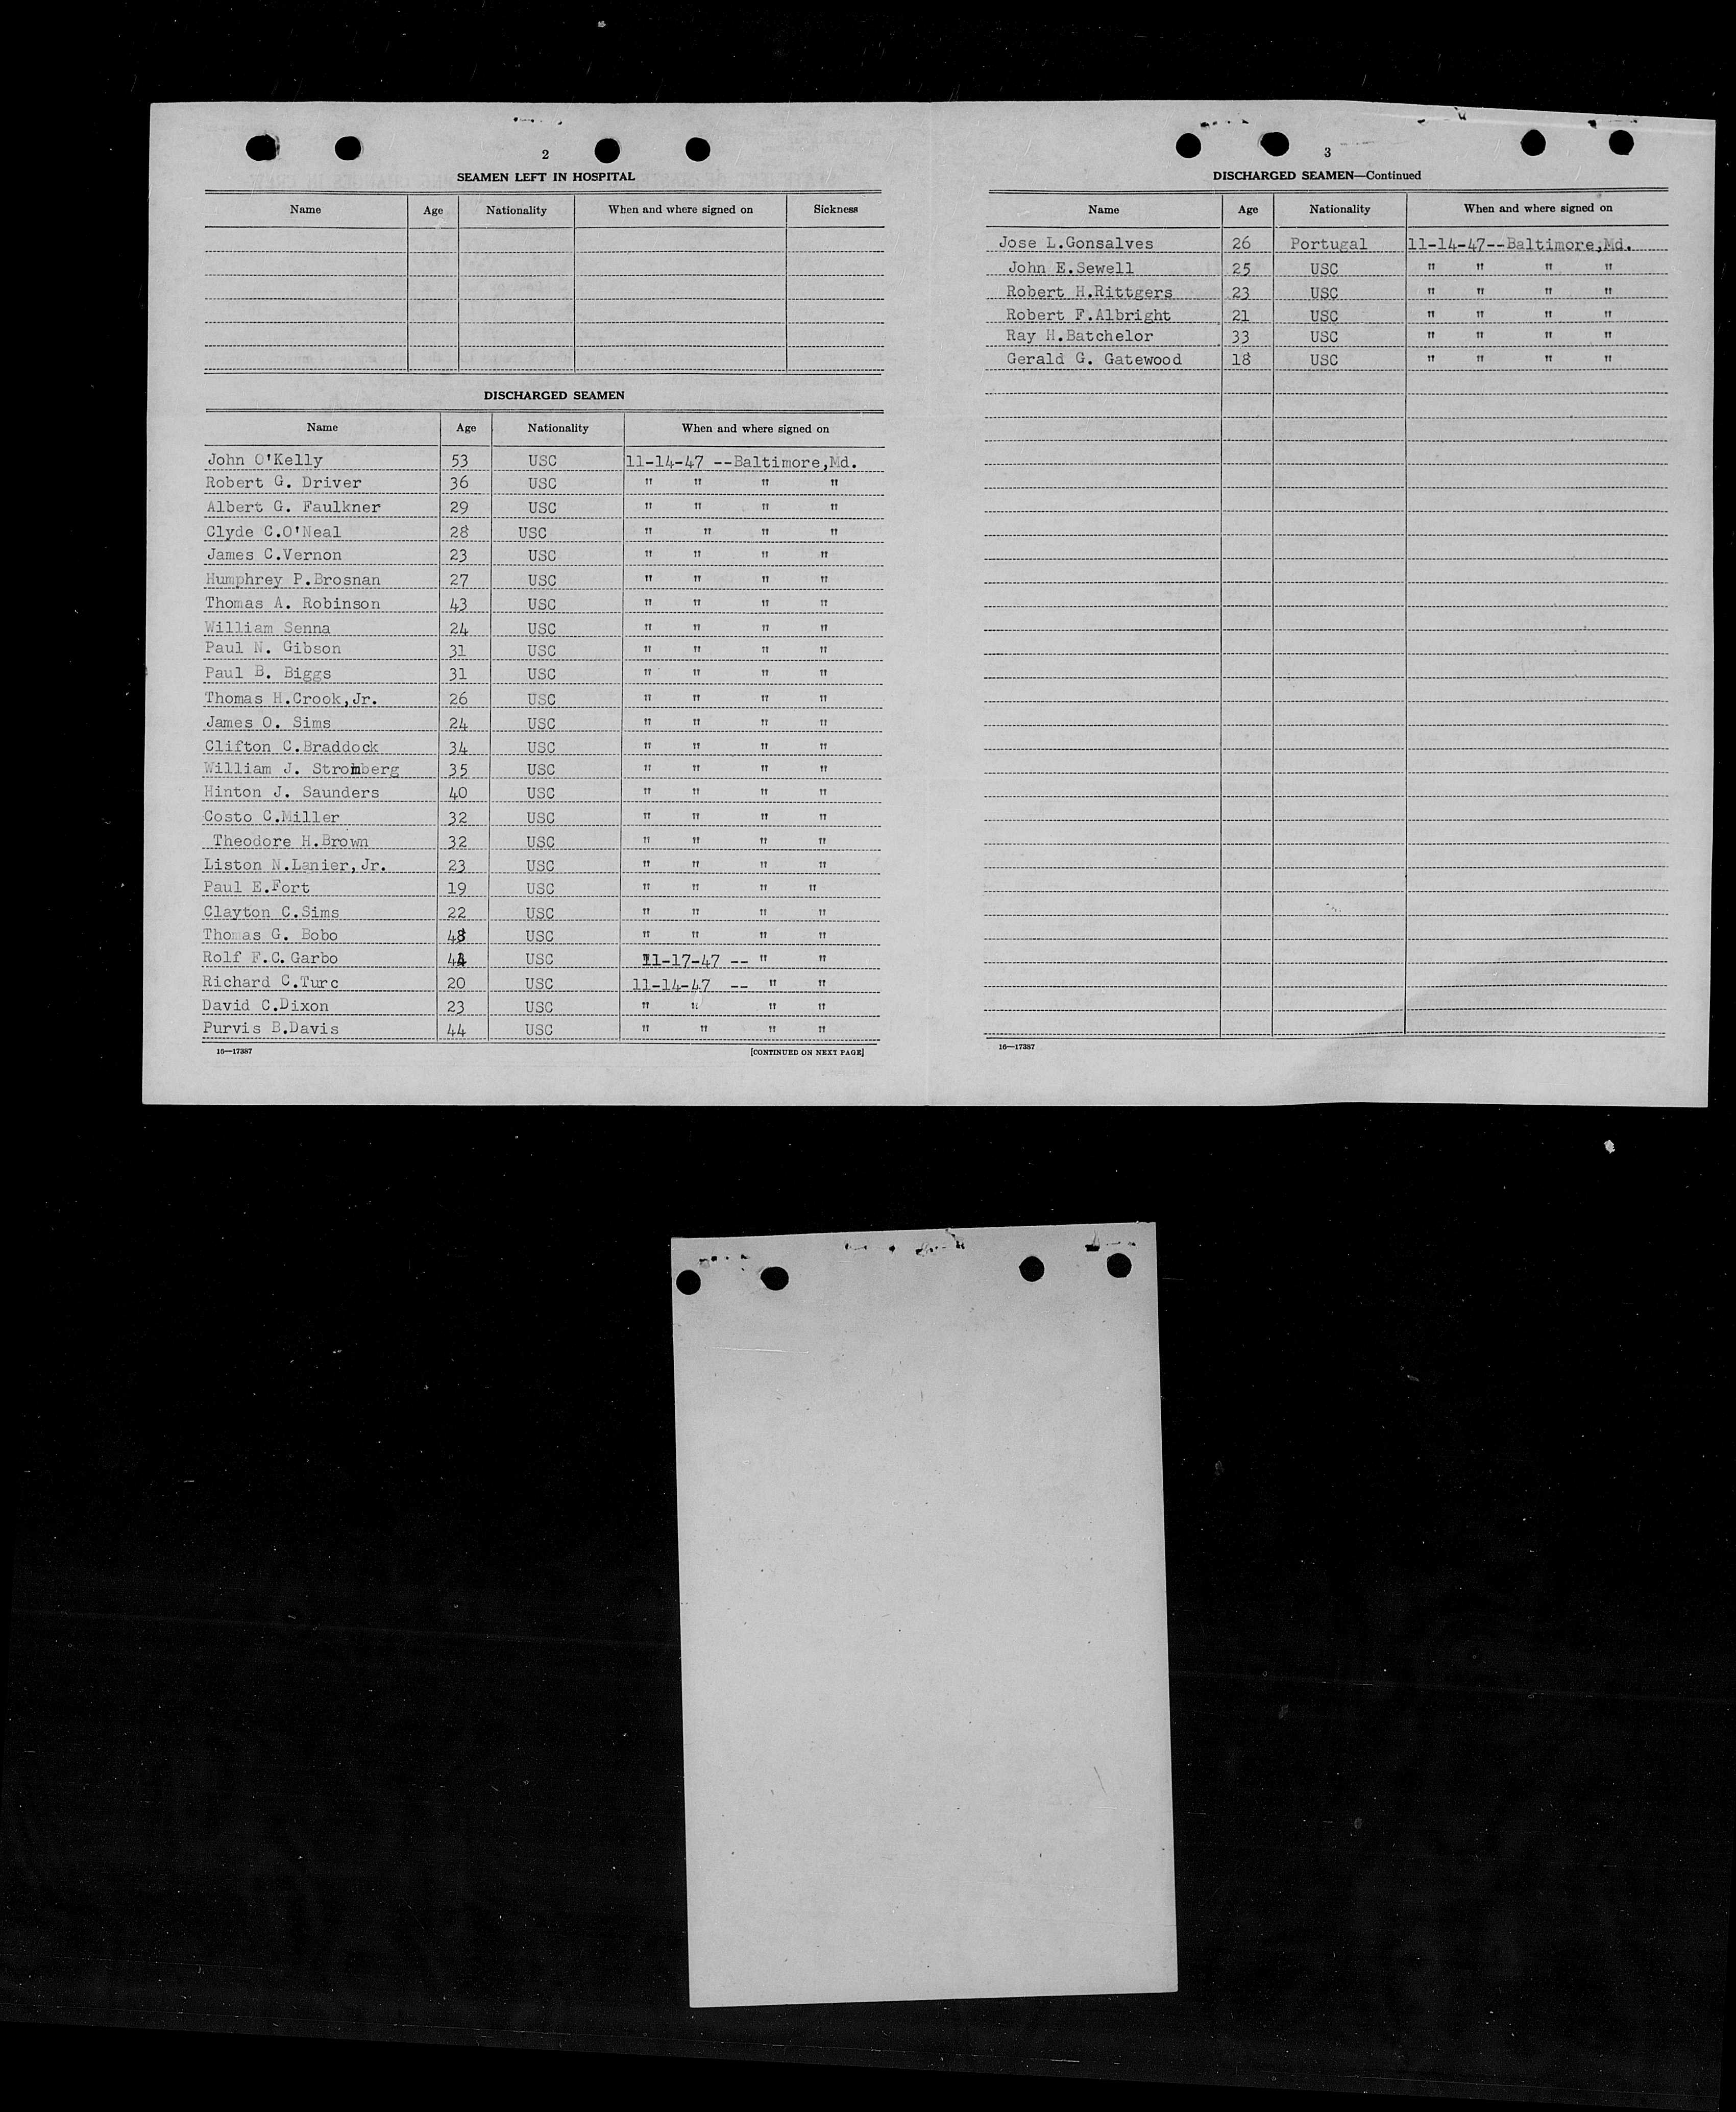 2
SEAMEN LEFT IN HOSPITAL
Name Age Nationality When and where signed on Sickness
DISCHARGED SEAMEN
Name Age Nationality When and where signed on
John O'Kelly 53 USC 11-14-47 --Baltimore,Md.
Robert G. Driver 36 USC " " " "
Albert G. Faulkner 29 USC " " " "
Clyde C.O'Neal 28 USC " " " "
James C.Vernon 23 USC " " " "
Humphrey P.Brosnan 27 USC " " " "
Thomas A. Robinson 43 USC " " " "
William Senna 24 USC " " " "
Paul N. Gibson 31 USC " " " "
Paul B. Biggs 31 USC " " " "
Thomas H.Crook,Jr. 26 USC " " " "
James O. Sims 24 USC " " " "
Clifton C.Braddock 34 USC " " " "
William J. Stromberg 35 USC " " " "
Hinton J. Saunders 40 USC " " " "
Costo C.Miller 32 USC " " " "
Theodore H.Brown 32 USC " " " "
Liston N.Lanier,Jr. 23 USC " " " "
Paul E.Fort 19 USC " " " "
Clayton C.Sims 22 USC " " " "
Thomas G. Bobo 48 USC " " " "
Rolf F.C.Garbo USC 11-17-47 -- " "
Richard C.Turc 20 USC 11-14-47 -- " "
David C.Dixon 23 USC " " " "
Purvis B.Davis 44 USC " " " "
16—17387 [CONTINUED ON NEXT PAGE]
3
DISCHARGED SEAMEN—Continued
Name Age Nationality When and where signed on
Jose L.Gonsalves 26 Portugal 11-14-47--Baltimore,Md.
John E.Sewell 25 USC " " " "
Robert H.Rittgers 23 USC " " " "
Robert F.Albright 21 USC " " " "
Ray H.Batchelor 33 USC " " " "
Gerald G. Gatewood 18 USC " " " "
16—17387